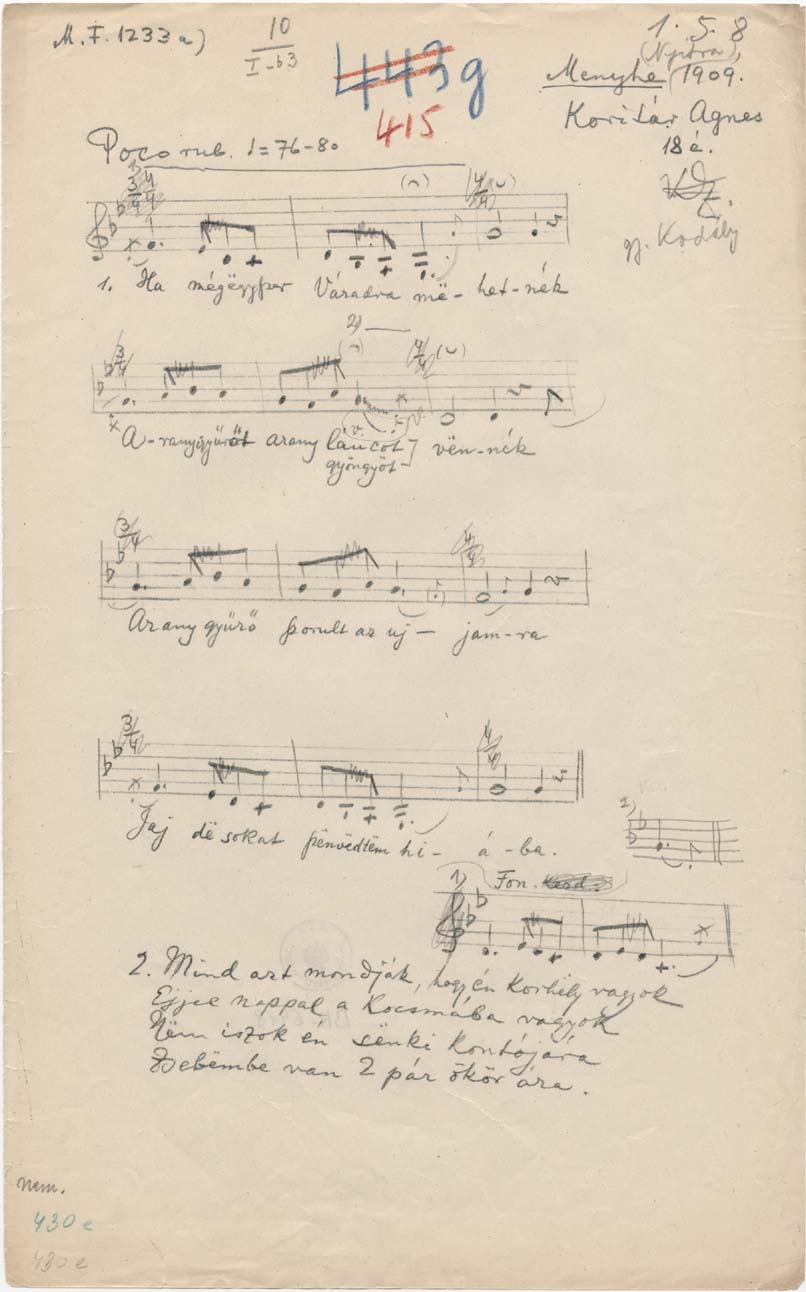 M. F. 1233 a)
10
I-b3
443 g
415
1. 5. 8
(Nyitra),
Menyhe 1909.
Koritár Ágnes
18 é.
gy. Kodály
Poco rub. ♩=76-80
1)
3/4 4/4
4/4
1. Ha mégëgyszer Váradra më-het-nék
2)
3/4
A-ranygyűrőt arany láncot vën-nék
gyöngyöt
3/4
Arany gyűrő szorult az uj- jam-ra
3/4
Jaj dë sokat szënvedtem hi- á-ba.
2)
1) Fon.
2. Mind azt mondják, hogy én korhely vagyok
Éjjee nappal a kocsmába vagyok
Nëm iszok én sënki kontójára
Zsebëmbe van 2 pár ökör ára.
nem.
430 e
430 e